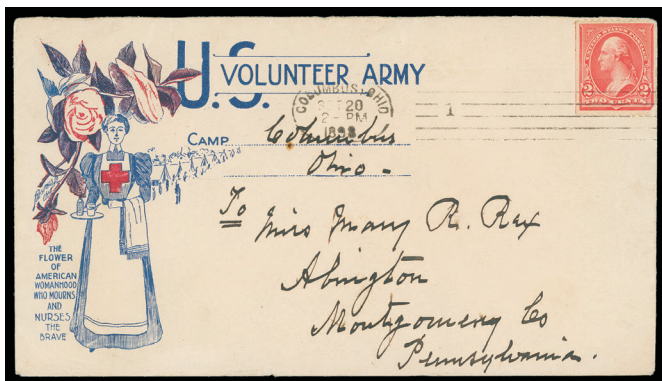 U.S. VOLUNTEER ARMY
COLUMBUS, OHIO
20
2- PM
1898
1
UNITED STATES POSTAGE
2 2
TWO CENTS
CAMP Columbus
Ohio -
To
Miss Mary R. Rex
Abington
Montgomery Co
Pennsylvania.
THE
FLOWER
OF
AMERICAN
WOMANHOOD
WHO MOURNS,
AND
NURSES
THE
BRAVE